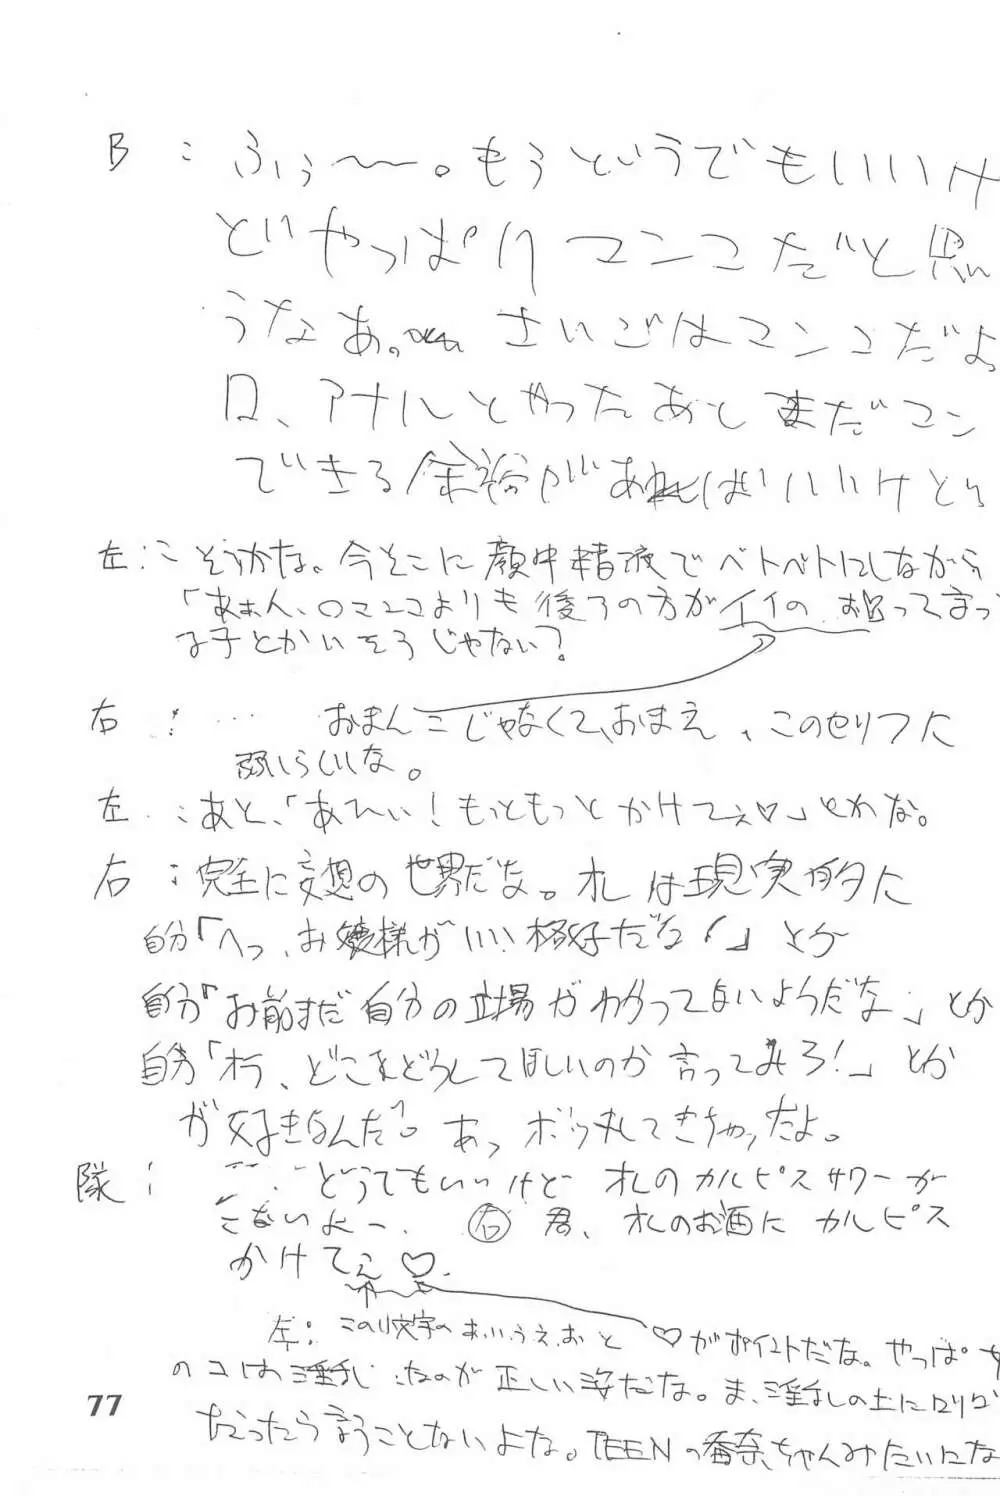 B : ふぅ〜〜。もうどうでもいいけ
どやっぱりマンコだと思
うなあ。さいごはマンコだよ
口、アナルとやったあとまだマン
できる余裕があればいいけど
左 : そうかな。今そこに顔中精液でベトベトにしながら
「あぁん、○マンコよりも後ろの方がイイの おっって言っ
る子とかいそうじゃない?
右 : … おまんこじゃなくて、おまえ、このセリフに
弱いらしいな。
左 : あと、「あひぃ!もっともっとかけてぇ♡」とかな。
右 : 完全に妄想の世界だな。オレは現実的に
自分「へっ、お嬢様がいい格好だな!」とか
自分「お前まだ自分の立場がわかってないようだな」とか
自分「オラ、どこをどうしてほしいのか言ってみろ!」とか
が好きなんだ。あっ、ボッ丸してきちゃったよ。
隊 : …どうでもいいけど オレのカルピスサワーが
こないよー。 右君、オレのお酒に カルピス
かけてぇ♡.
左 : この小文字のぁ、ぃ、ぅ、ぇ、ぉと♡がポイントだな。
77